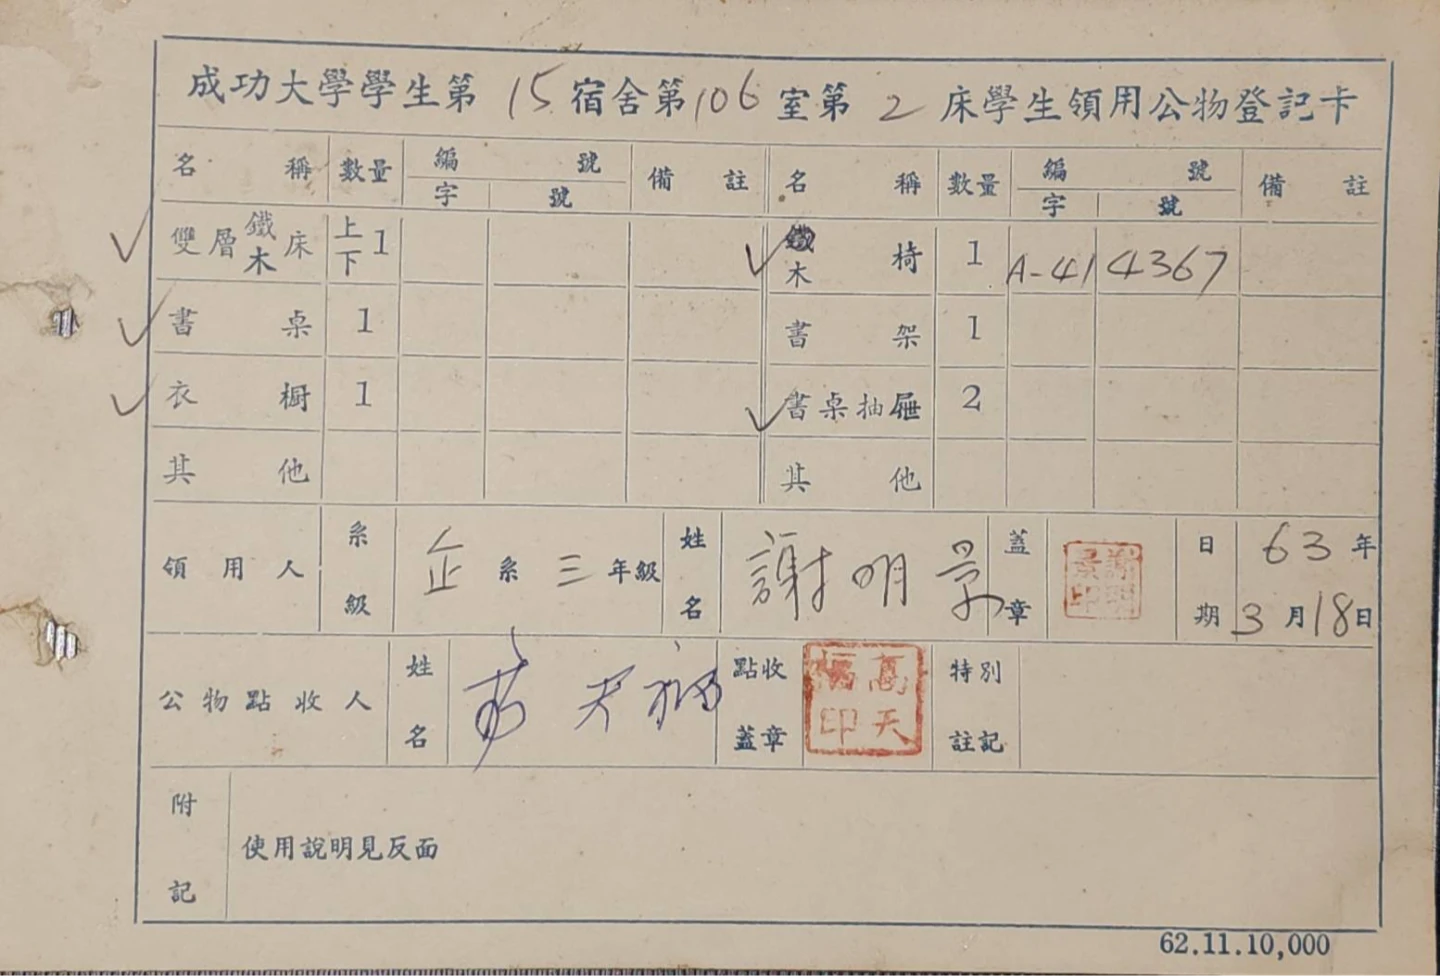 成功大學學生第15宿舍第106室第2床學生領用公物登記卡
名稱 數量 編號 備註 名稱 數量 編號 備註
字 號 字 號
雙層鐵木床 上下1 鐵木椅 1 A-41 4367
書桌 1 書架 1
衣櫥 1 書桌抽屜 2
其他 其他
領用人 系級 企系三年級 姓名 謝明景 蓋章 謝明景印 日期 63年3月18日
公物點收人 姓名 高天福 點收蓋章 高天福印 特別註記
附記 使用說明見反面
62.11.10,000